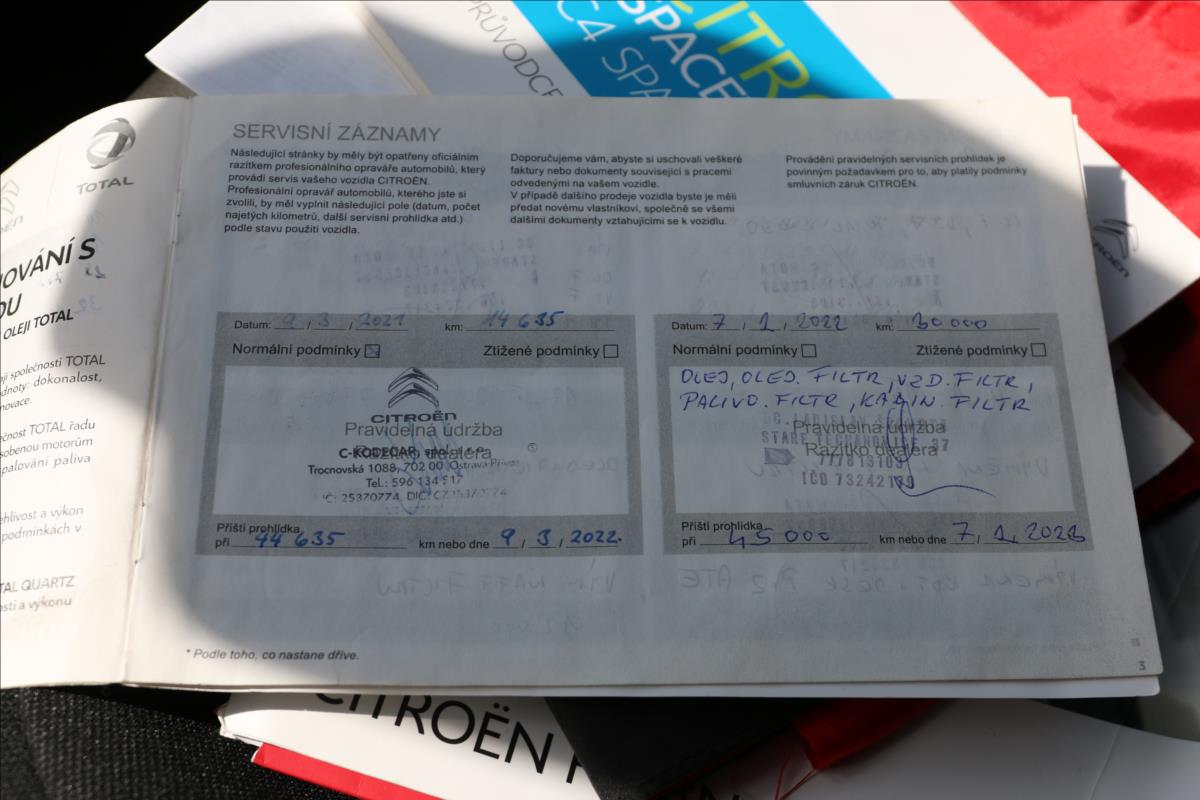 PRŮVODCE
CITRO
SPACE
C4 SPA
TOTAL
OVÁNÍ S
OU
OLEJI TOTAL
jí společnosti TOTAL
dnoty: dokonalost,
novace.
čnost TOTAL řadu
sobenou motorům
palování paliva
ehlivost a výkon
podmínkách v
TAL QUARTZ
osti a výkonu
SERVISNÍ ZÁZNAMY
Následující stránky by měly být opatřeny oficiálním
razítkem profesionálního opraváře automobilů, který
provádí servis vašeho vozidla CITROËN.
Profesionální opravář automobilů, kterého jste si
zvolili, by měl vyplnit následující pole (datum, počet
najetých kilometrů, další servisní prohlídka atd.)
podle stavu použití vozidla.
Doporučujeme vám, abyste si uschovali veškeré
faktury nebo dokumenty související s pracemi
odvedenými na vašem vozidle.
V případě dalšího prodeje vozidla byste je měli
předat novému vlastníkovi, společně se všemi
dalšími dokumenty vztahujícími se k vozidlu.
Provádění pravidelných servisních prohlídek je
povinným požadavkem pro to, aby platily podmínky
smluvních záruk CITROËN.
CITROËN
Datum: 9 / 3 / 2021 km: 14 635
Normální podmínky Ztížené podmínky
CITROËN
Pravidelná údržba
C-KODECAR, spol. s r.o.
Razítko dealera
Trocnovská 1088, 702 00 Ostrava-Přívoz
Tel.: 596 134 517
IČ: 25370774, DIČ: CZ25370774
Příští prohlídka
při 44 635 km nebo dne 9 / 3 / 2022.
Datum: 7 / 1 / 2022 km: 30 000
Normální podmínky Ztížené podmínky
OLEJ, OLEJ. FILTR, VZD. FILTR,
PALIVO. FILTR, KABIN. FILTR
Pravidelná údržba
STARÉ TĚCHANOVICE 37
Razítko dealera
777813109
IČO 73242170
Příští prohlídka
při 45 000 km nebo dne 7 / 1 / 2023
* Podle toho, co nastane dříve.
3
CITROËN